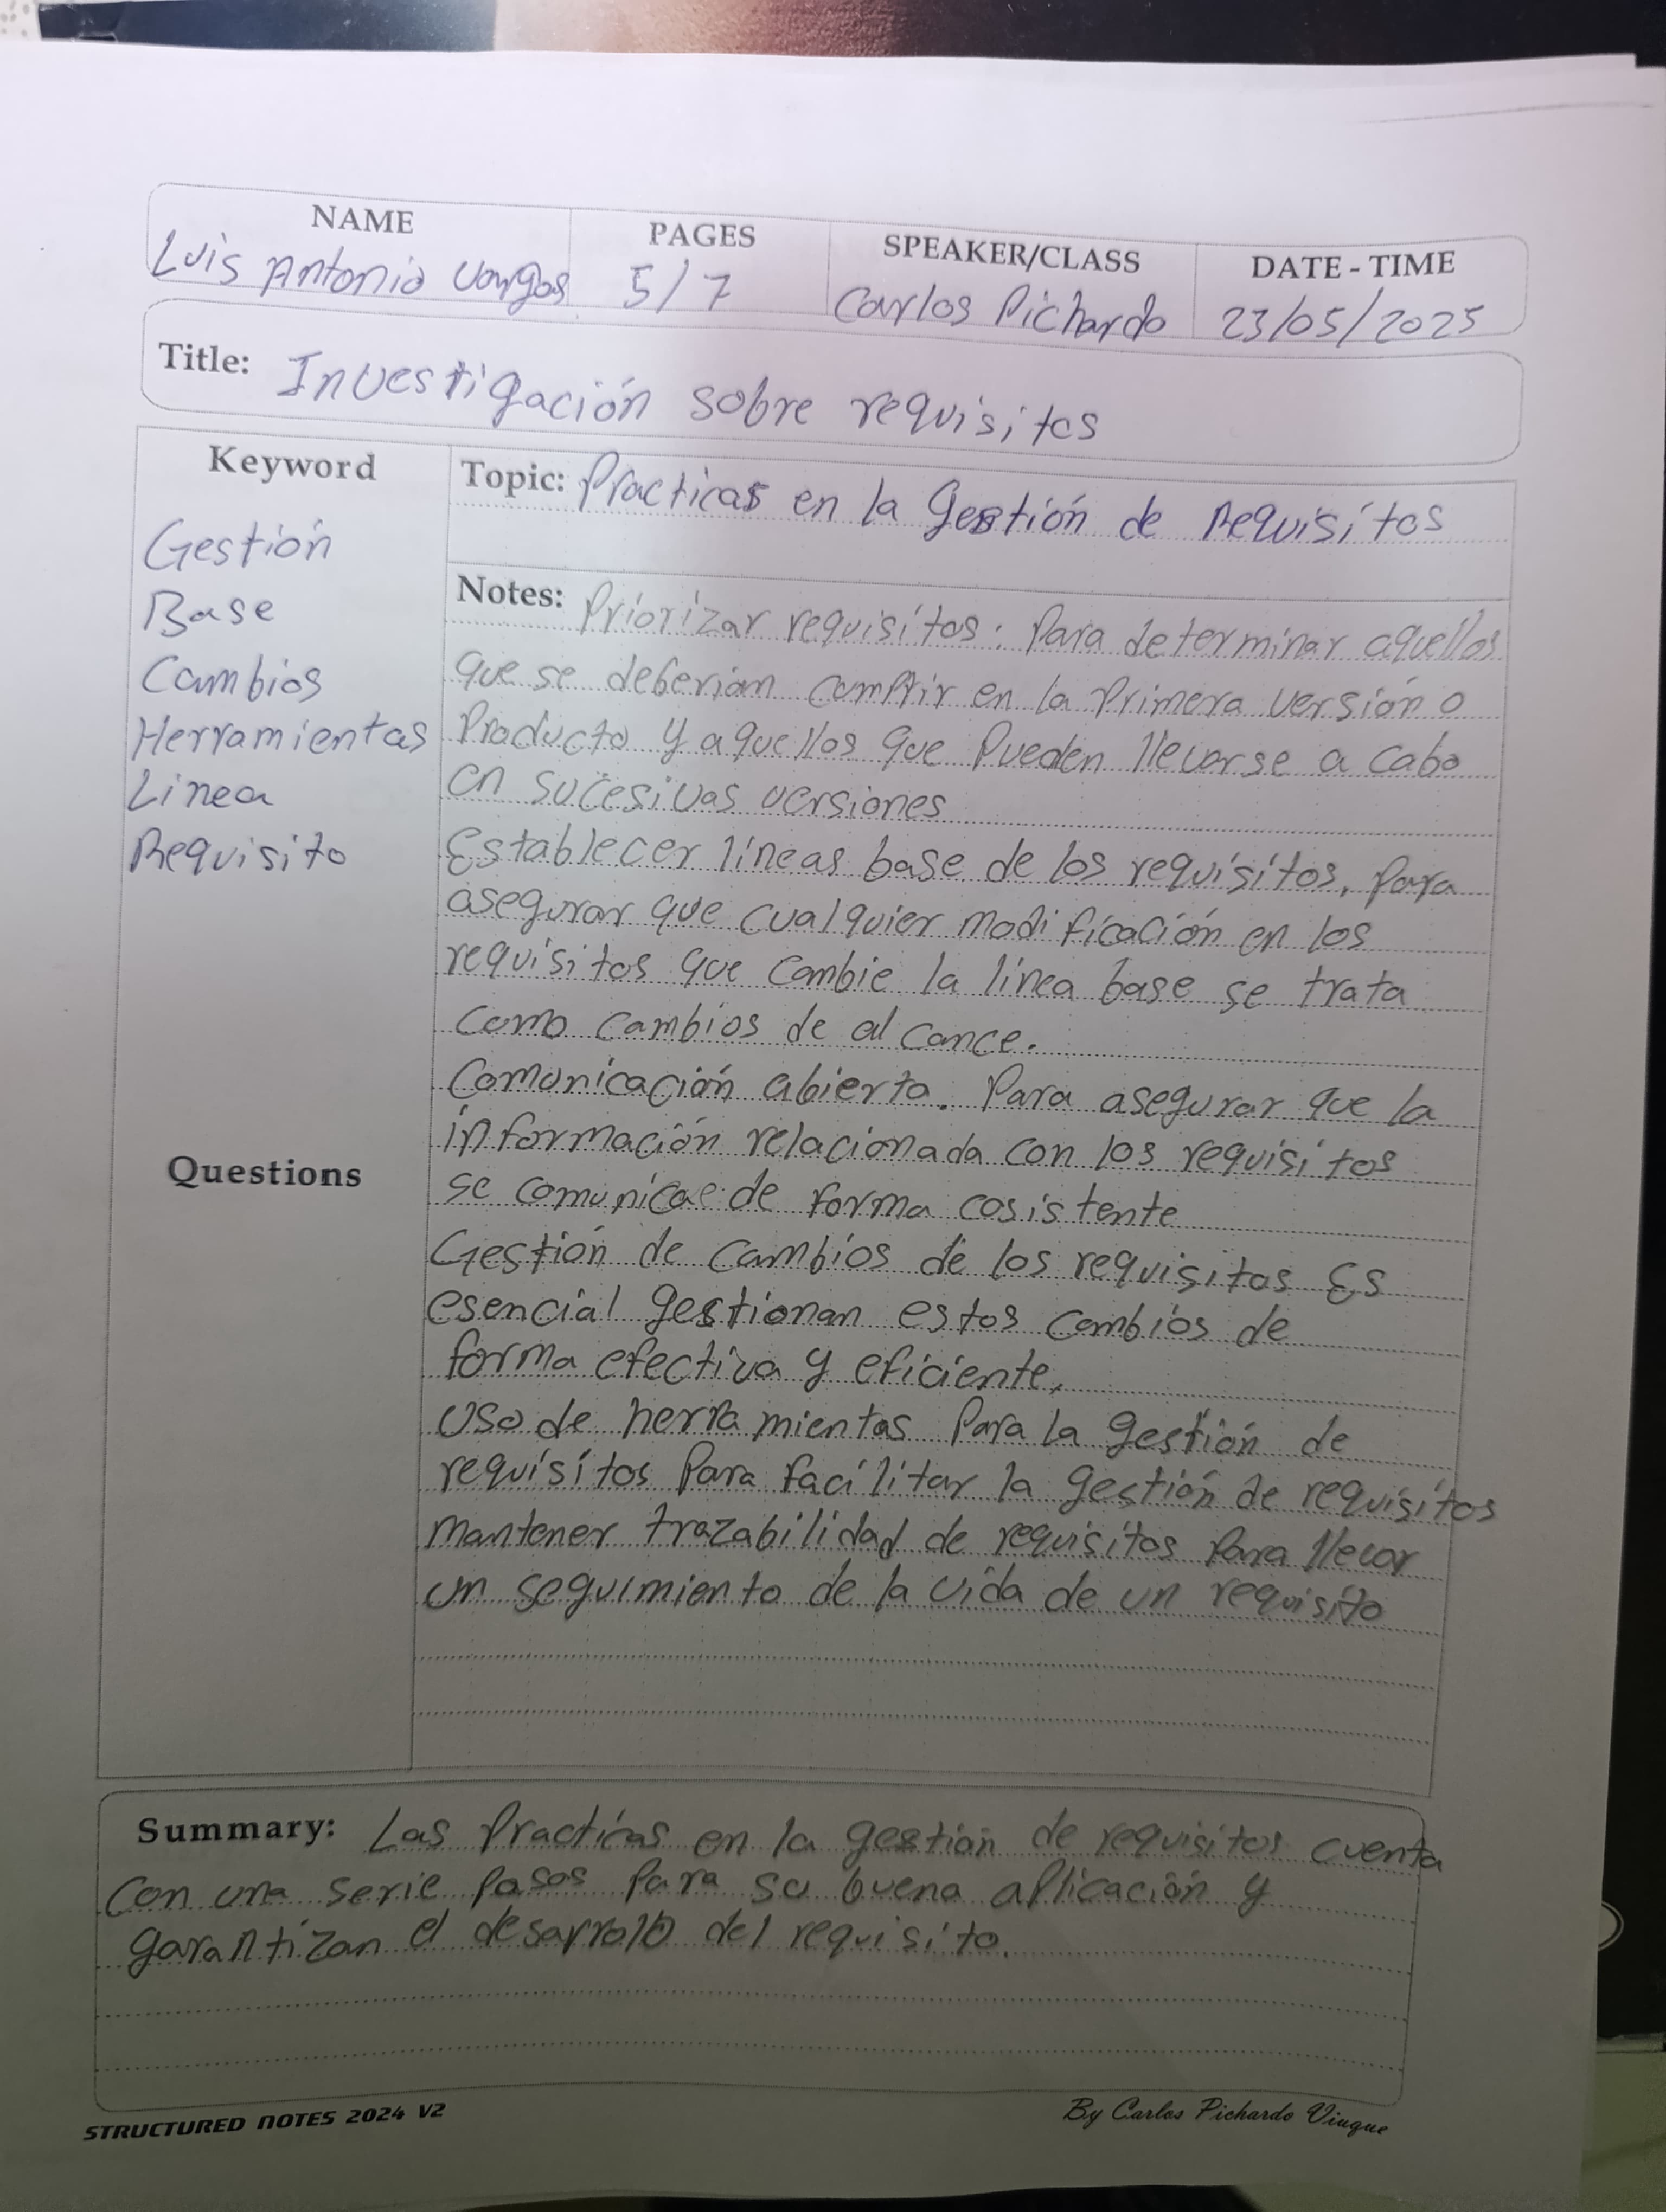 NAME
PAGES
SPEAKER/CLASS
DATE - TIME
Luis Antonio Vargas
5/7
Carlos Pichardo
23/05/2025
Title: Investigación sobre requisitos
Keyword
Gestión
Base
Cambios
Herramientas
Linea
Requisito
Questions
Topic: Practicas en la Gestión de Requisitos
Notes: Priorizar requisitos: Para determinar aquellos
que se deberian cumplir en la Primera versión o
Producto y aquellos que Pueden llevarse a cabo
en sucesivas versiones
Establecer líneas base de los requisitos, Para
asegurar que cualquier modificación en los
requisitos que cambie la línea base se trata
como cambios de alcance.
Comunicación abierta. Para asegurar que la
información relacionada con los requisitos
se comunicae de forma cosistente
Gestión de cambios de los requisitos Es
esencial gestionan estos cambios de
forma efectiva y eficiente,
Uso de herramientas Para la gestión de
requisitos Para facilitar la gestión de requisitos
mantener trazabilidad de requisitos Para llevar
un seguimiento de la vida de un requisito
Summary: Las Practicas en la gestión de requisitos cuenta
con una serie Pasos Para su buena aplicación y
garantizan el desarrollo del requisito.
STRUCTURED NOTES 2024 V2
By Carlos Pichardo Viuque